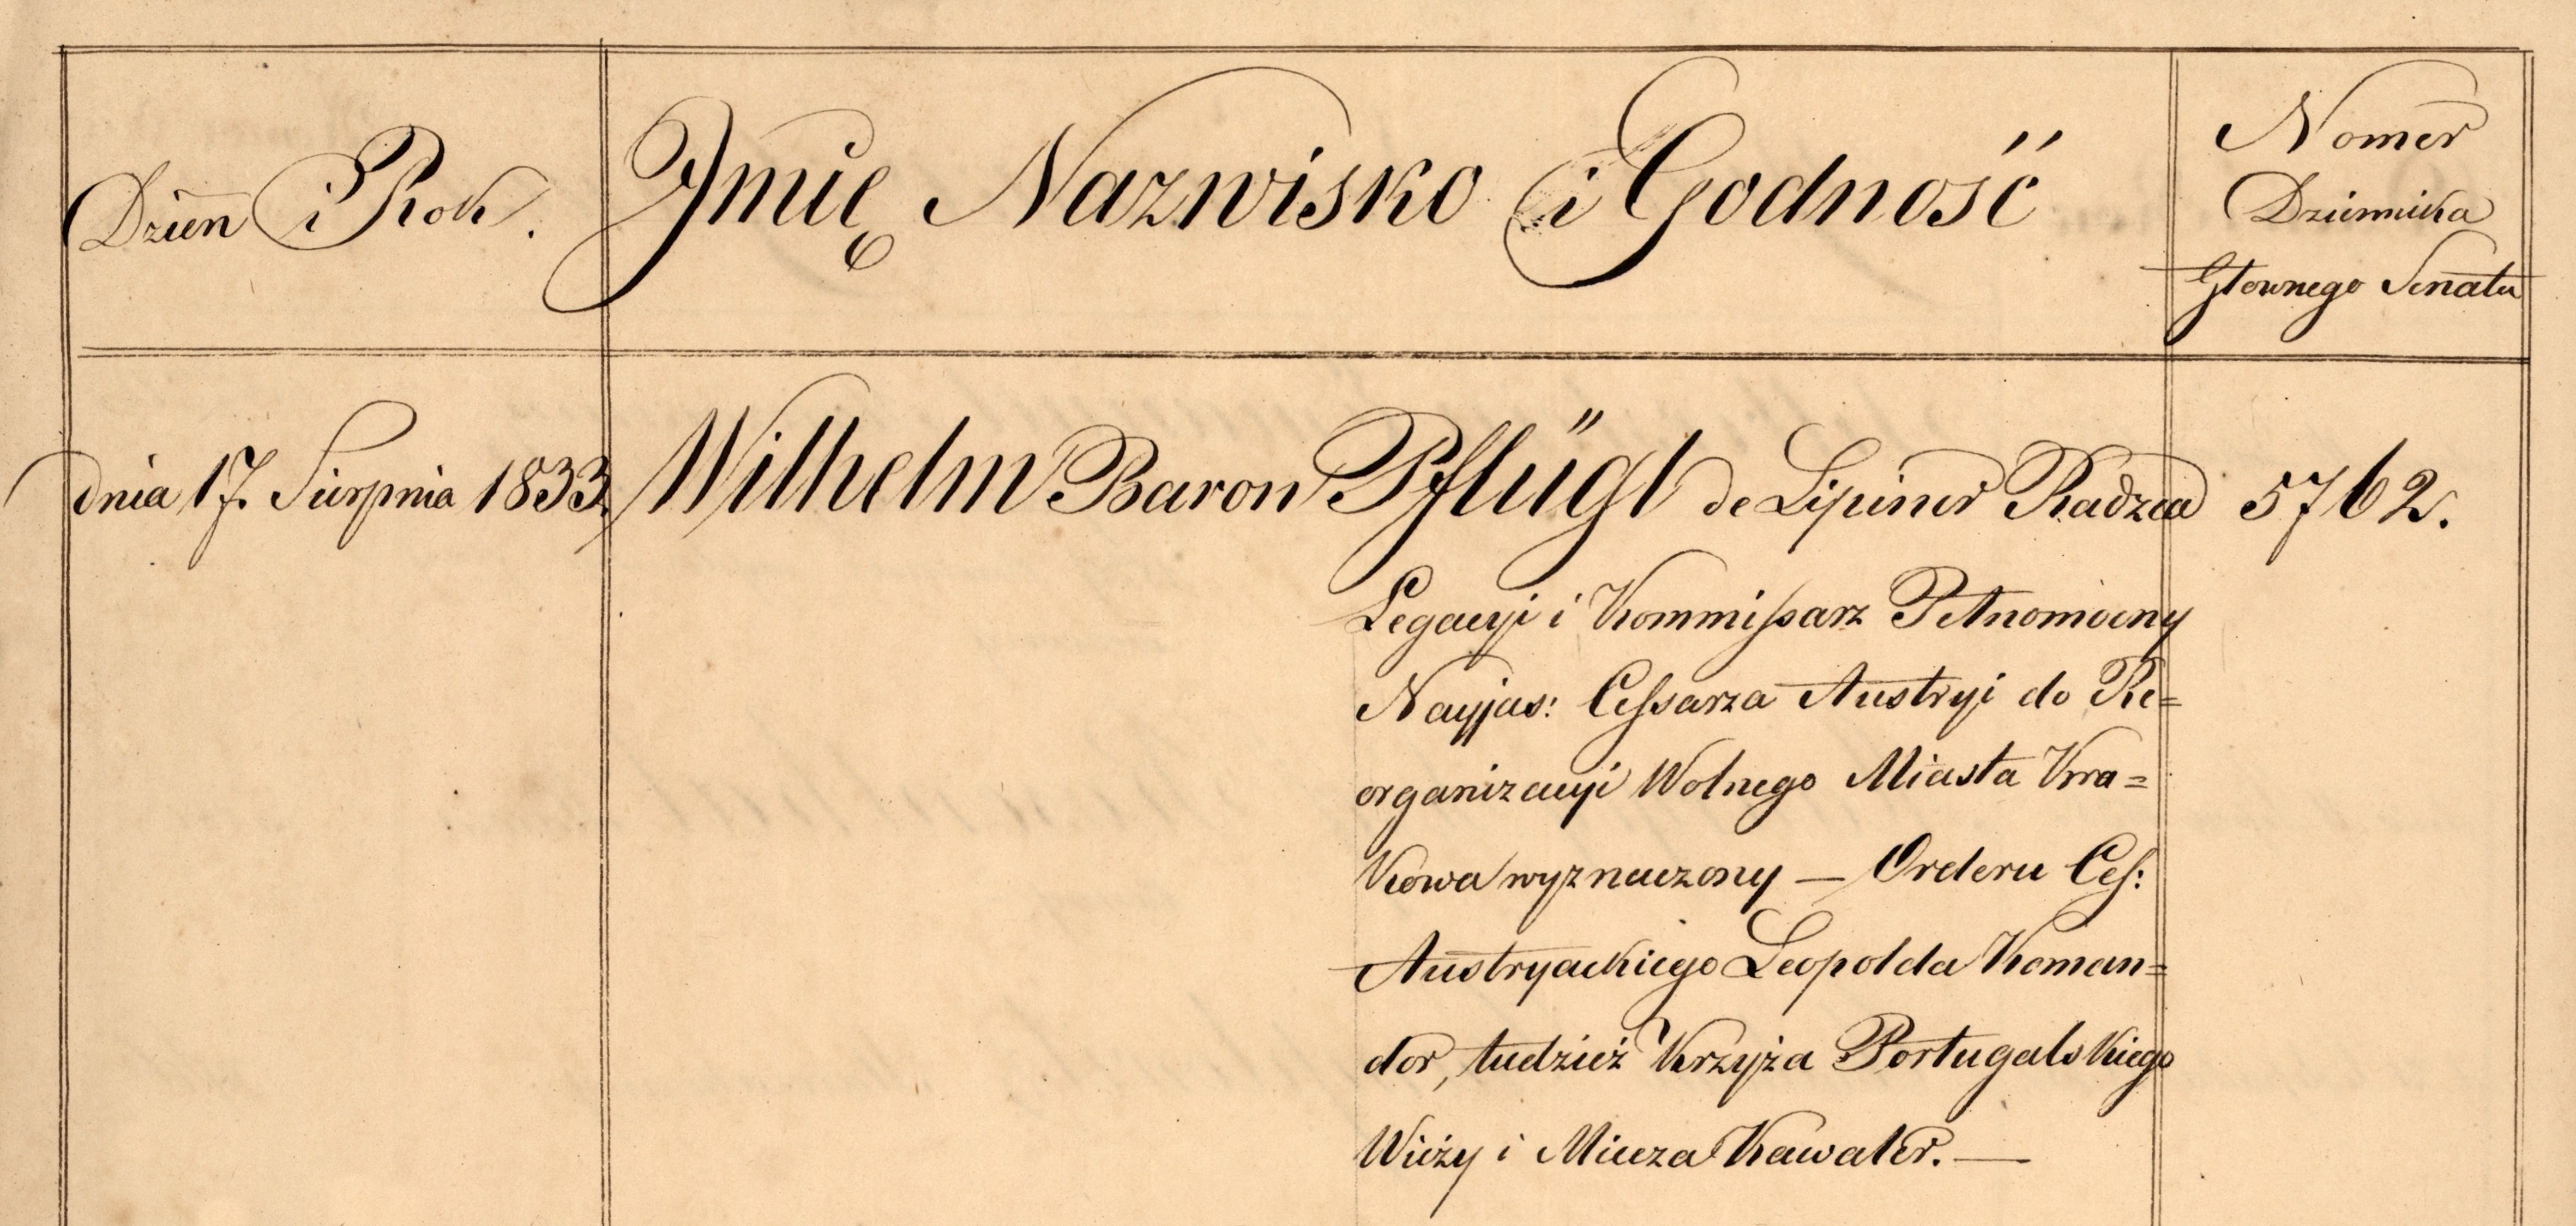 Dzien i Rok.
Imię Nazwisko i Godność
Nomer
Dziennika
Głownego Senatu
dnia 17. Sierpnia 1833. Wilhelm Baron Pflügl de Lipiner Radzca 5762.
Legacyi i Kommissarz Pełnomocny
Nayjas: Cessarza Austryi do Re=
organizacyi Wolnego Miasta Kra=
kowa wyznaczony — Orderu Ces:
Austryackiego Leopolda Koman=
dor, tudzież Krzyża Portugalskiego
Wieży i Miecza Kawaler. —